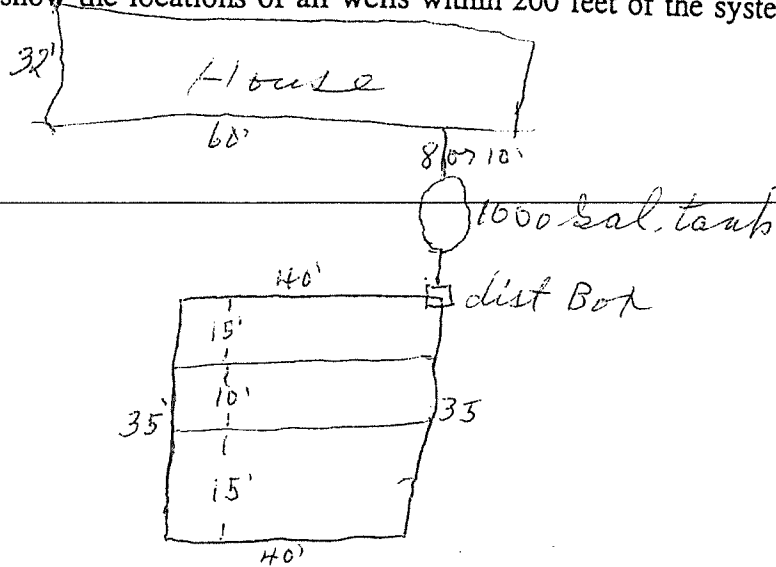 show the locations of all wells within 200 feet of the syste
32'
House
60'
8 or 10'
1000 Gal. tank
dist Box
40'
15'
10'
35'
35
15'
40'